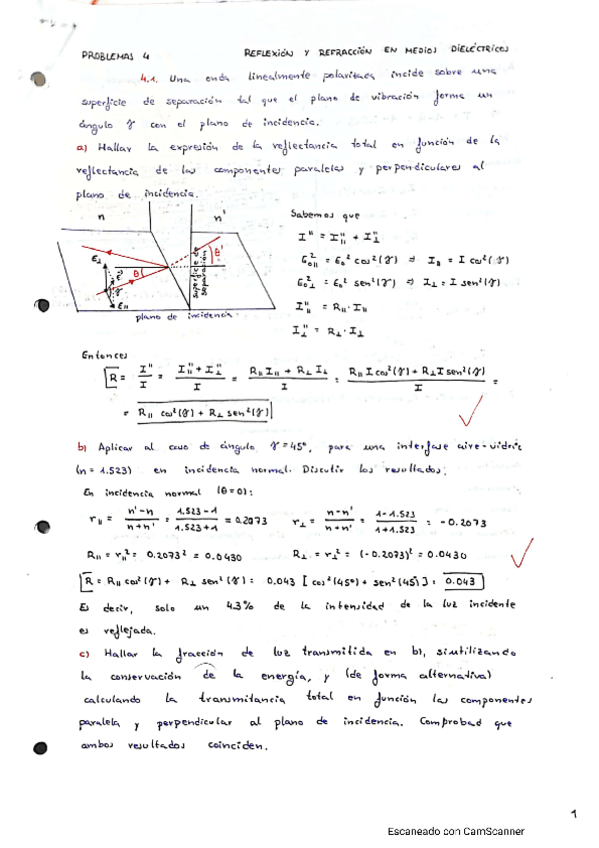 PROBLEMAS 4 REFLEXIÓN Y REFRACCIÓN EN MEDIOS DIELÉCTRICOS
4.1. Una onda linealmente polarizada incide sobre una
superficie de separación tal que el plano de vibración forma un
ángulo γ con el plano de incidencia.
a) Hallar la expresión de la reflectancia total en función de la
reflectancia de las componentes paralelas y perpendiculares al
plano de incidencia.
n n'
E⊥
E
γ
E||
θ
θ'
superficie de separación
plano de incidencia
Sabemos que
I" = I"|| + I"⊥
E²o|| = E₀² cos²(γ) ⇒ I|| = I cos²(γ)
E²o⊥ = E₀² sen²(γ) ⇒ I⊥ = I sen²(γ)
I"|| = R|| · I||
I"⊥ = R⊥ · I⊥
Entonces
R = I"/I = (I"|| + I"⊥)/I = (R|| I|| + R⊥ I⊥)/I = (R|| I cos²(γ) + R⊥ I sen²(γ))/I =
= R|| cos²(γ) + R⊥ sen²(γ)
b) Aplicar al caso de ángulo γ = 45°, para una interfase aire-vidrio
(n = 1.523) en incidencia normal. Discutir los resultados.
En incidencia normal (θ=0):
r|| = (n'-n)/(n+n') = (1.523-1)/(1.523+1) = 0.2073 r⊥ = (n-n')/(n+n') = (1-1.523)/(1+1.523) = -0.2073
R|| = r||² = 0.2073² = 0.0430 R⊥ = r⊥² = (-0.2073)² = 0.0430
R = R|| cos²(γ) + R⊥ sen²(γ) = 0.043 [cos²(45°) + sen²(45)] = 0.043
Es decir, solo un 4.3% de la intensidad de la luz incidente
es reflejada.
c) Hallar la fracción de luz transmitida en b), si utilizando
la conservación de la energía, y (de forma alternativa)
calculando la transmitancia total en función las componentes
paralela y perpendicular al plano de incidencia. Comprobad que
ambos resultados coinciden.
1
Escaneado con CamScanner